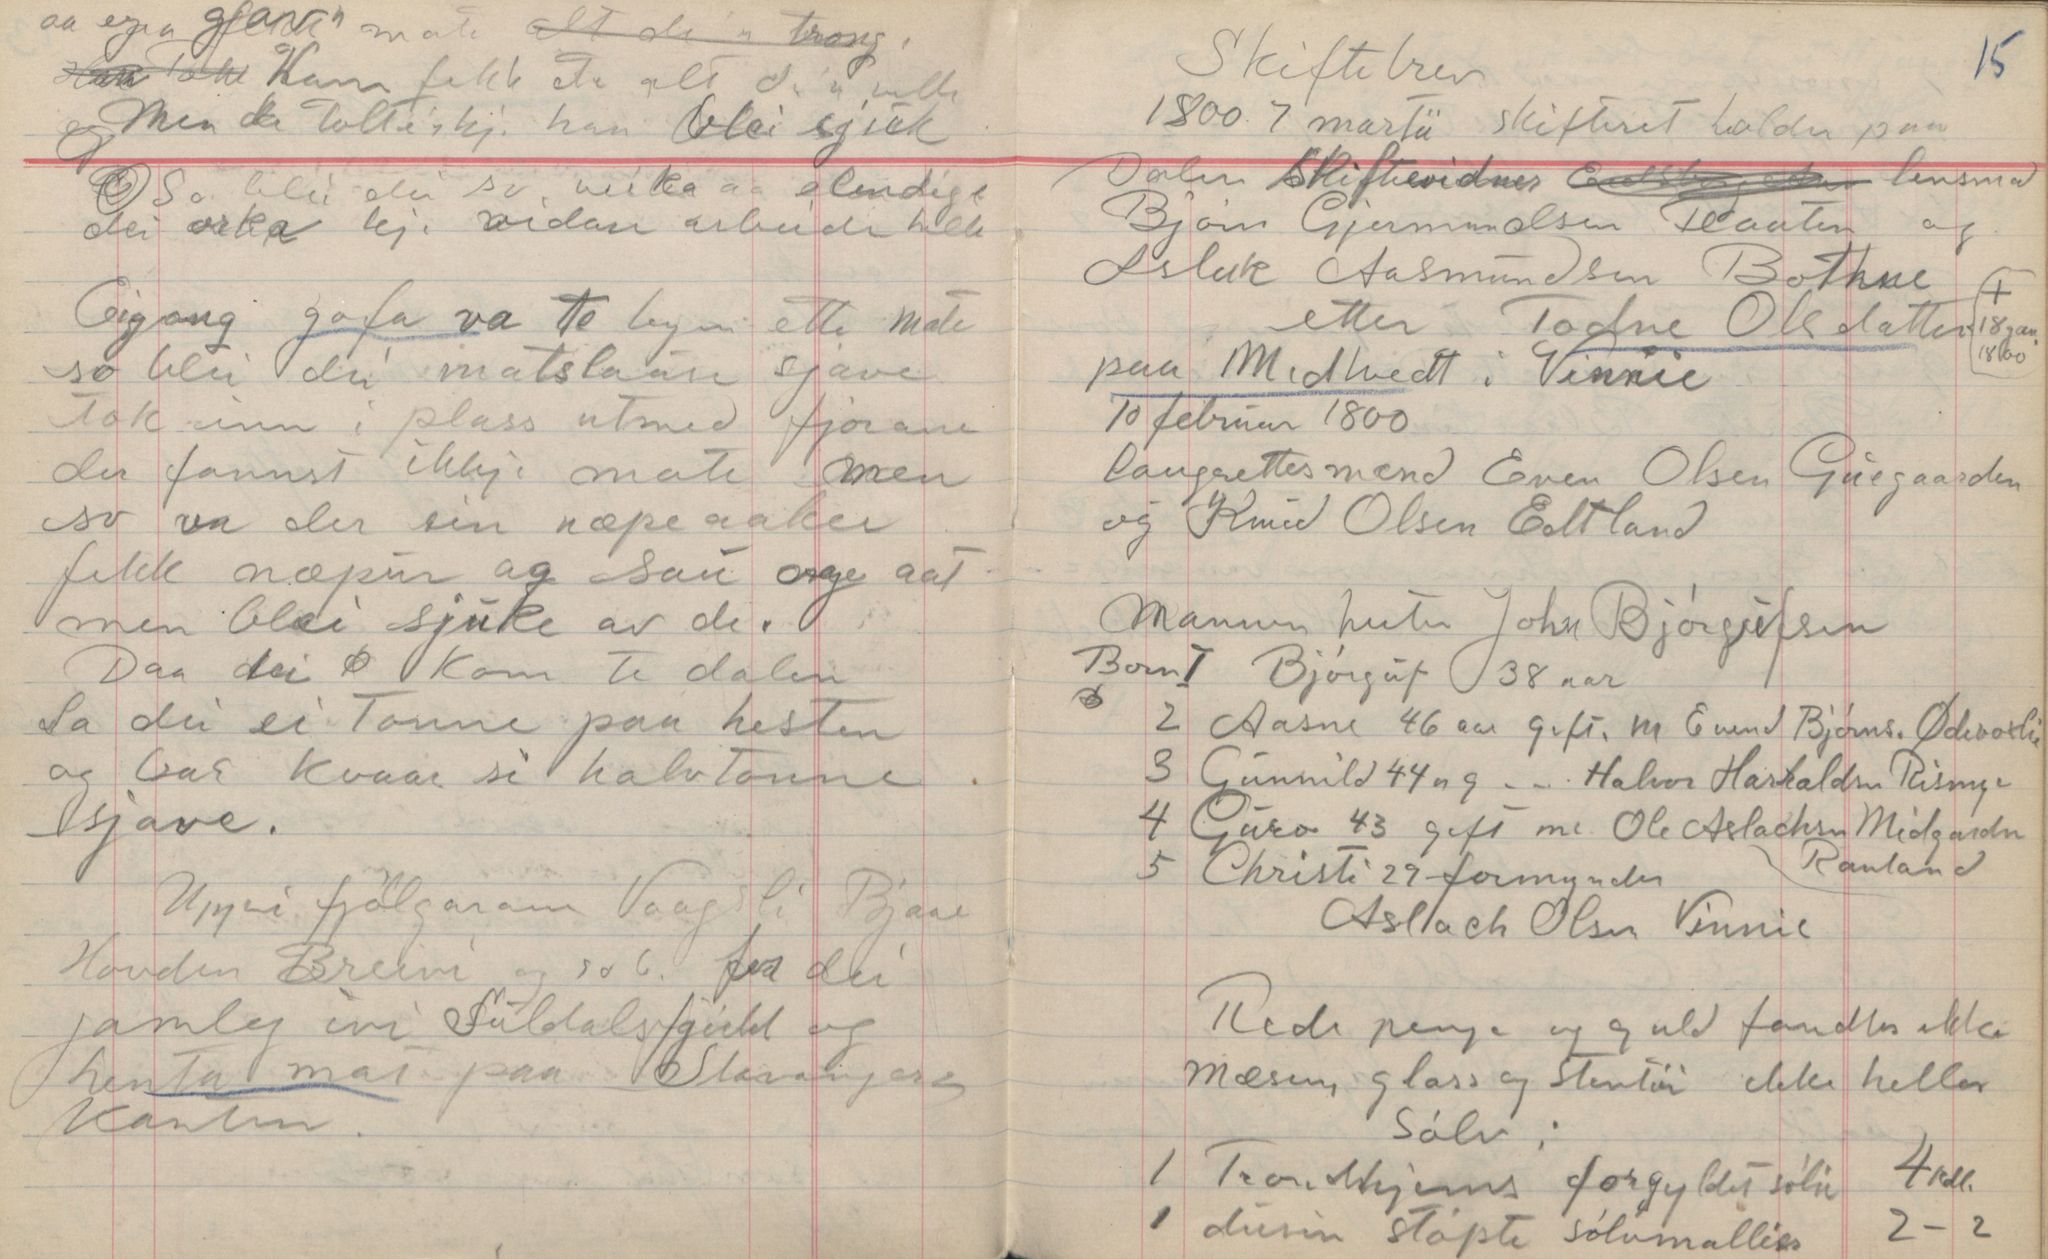 mate alt de'n trong.
Han fekk eta alt de'n ville
og Men de tolte'kj. han blei sjuk
So blei dei so veika aa elendige
dei orka kje vidare arbeide helle
Eigong gofa va te byen ette mate
so blei dei matslause sjave
tok inn i plass utmed fjorane
der fannst ikkje mate men
so va der ein næpeaaker
fekk næpur og sau aat
men blei sjuke av de.
Daa dei kom te dalen
La dei ei tonne paa hesten
og bar kvaar si halvtonne
sjave.
Uppi fjølgaram Vaagsli Bjaae
Hovden Breivi og so b. for dei
jamleg ivi Suldalsfjeld og
henta mat paa Stavanger
Kanten.
15
Skiftebrev
1800. 7 martii skifteret holder paa
Dalen Skiftevidner lensmd
Bjørn Gjermundsen Kaaten og
Asluk Aasmundsen Bothne
etter Todne Olsdatter
+ 18 jan. 1800
paa Midtvedt i Vinnie
10 februar 1800
laugrettesmænd Even Olsen Guegaarden
og Knud Olsen Edtland
Mannen heter John Bjørgufsen
Born 1 Bjørguf 38 aar
2 Aasne 46 aar gift. m Evend Bjørns. Ødevaslie
3 Gunnild 44 a g - - Halvor Harkaldsn Rismye
4 Guro 43 gift me Ole Aslachsn Midgarden
Rauland
5 Christi 29 formynder
Aslach Olsen Vinnie
Rede penge og guld fandtes ikke
Mæsing glass og Stentøi ikke heller
Sølv:
1 Trondhjems forgyldet sølv 4 Rdl.
1 dusin støpte sølvmallies 2 - 2